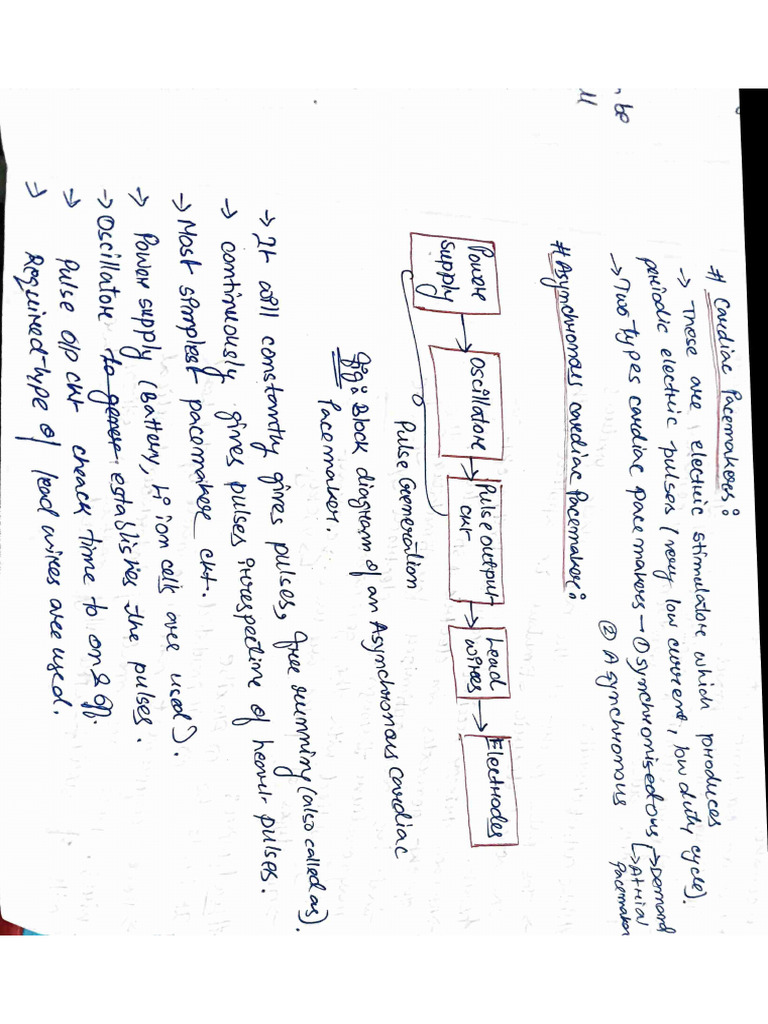 # Cardiac Pacemakers:
→ These are electric stimulator which produces
periodic electric pulses (very low current, low duty cycle).
→ Two types cardiac pacemakers → ① synchronisedous → Demand
→ Atrial pacemaker
② Asynchronous
# Asynchronous cardiac pacemaker:
Power supply → Oscillator → Pulse output ckt → Lead wires → Electrodes
Pulse Generation
fig: Block diagram of an Asynchronous cardiac
Pacemaker.
→ It will constantly gives pulses, free running (also called as).
→ continuously gives pulses irrespective of heart pulses.
→ Most simplest pacemaker ckt.
→ Power supply (Battery, Li ion cells are used).
→ Oscillator to gener establishes the pulses.
→ Pulse o/p ckt check time to on & off.
→ Required type of lead wires are used.
, be